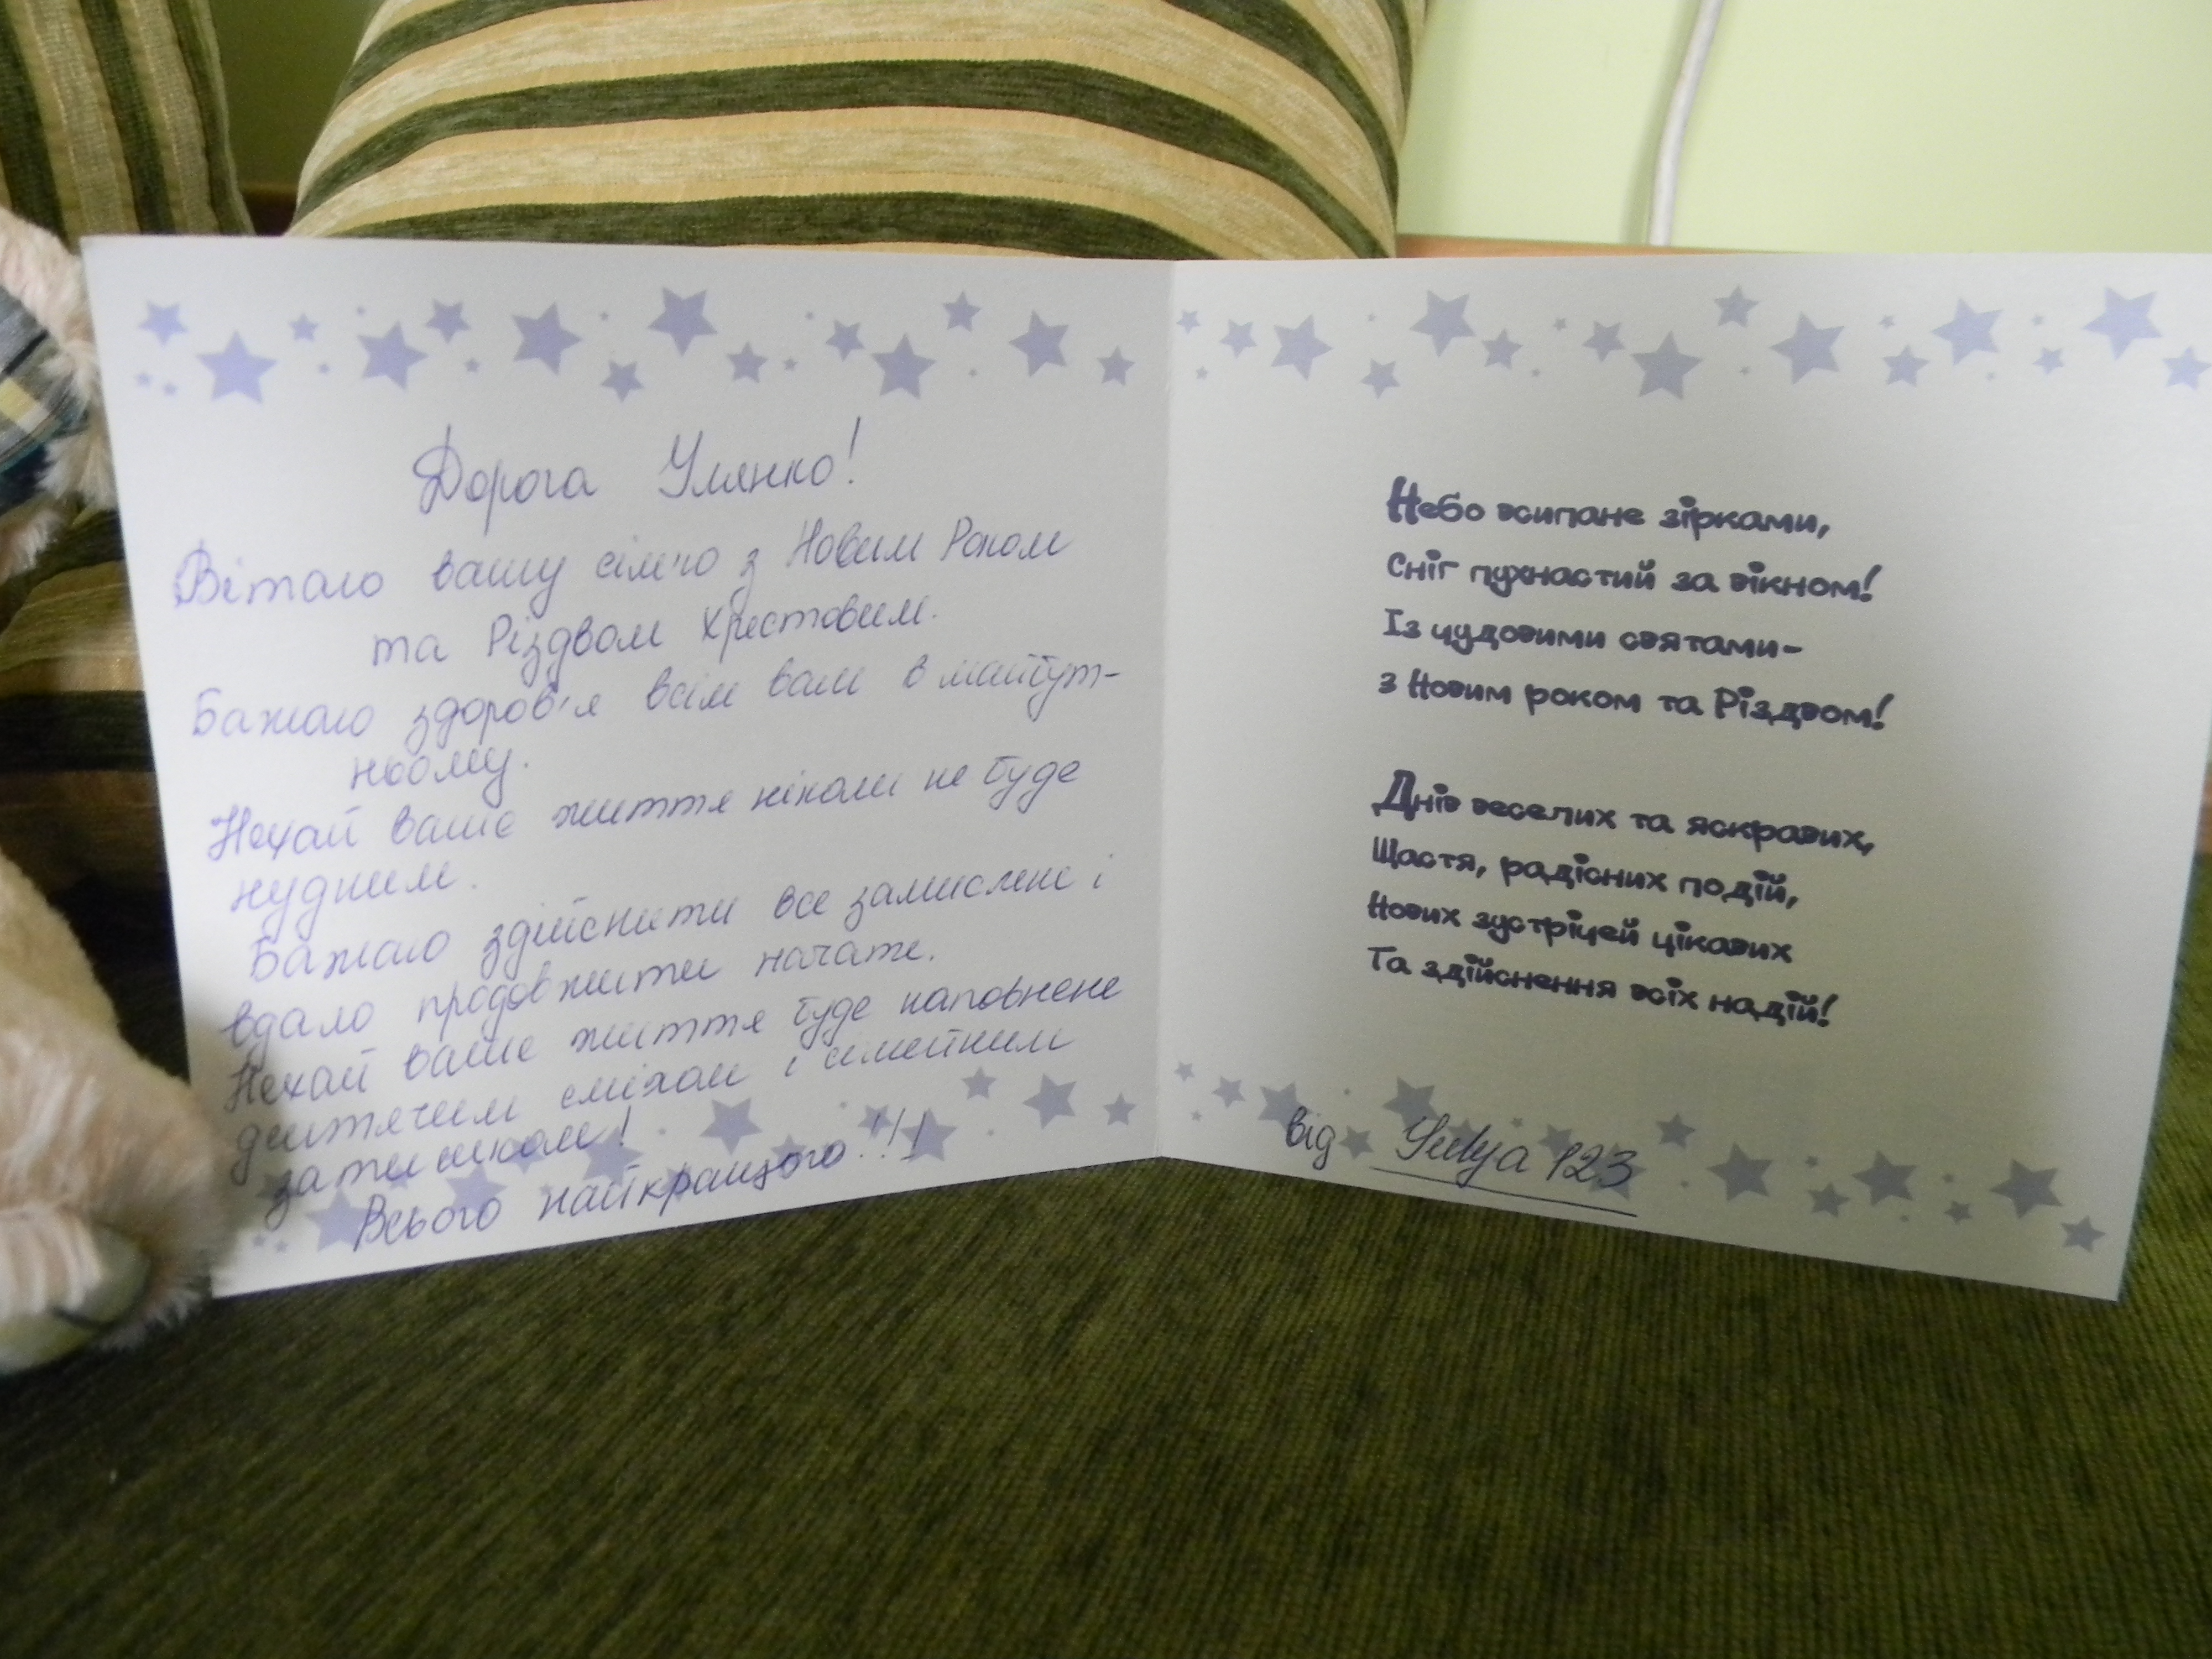 Дорога Улянко!
Вітаю вашу сім'ю з Новим Роком
та Різдвом Христовим.
Бажаю здоров'я всім вам в майбут-
ньому.
Нехай ваше життя ніколи не буде
нудним.
Бажаю здійснити все замислене і
вдало продовжити почате.
Нехай ваше життя буде наповнене
дитячим сміхом і сімейним
затишком!
Всього найкращого!!!
Небо всипане зірками,
Сніг пухнастий за вікном!
Із чудовими святами-
з Новим роком та Різдвом!
Днів веселих та яскравих,
Щастя, радісних подій,
Нових зустрічей цікавих
Та здійснення всіх надій!
від Yulya 123